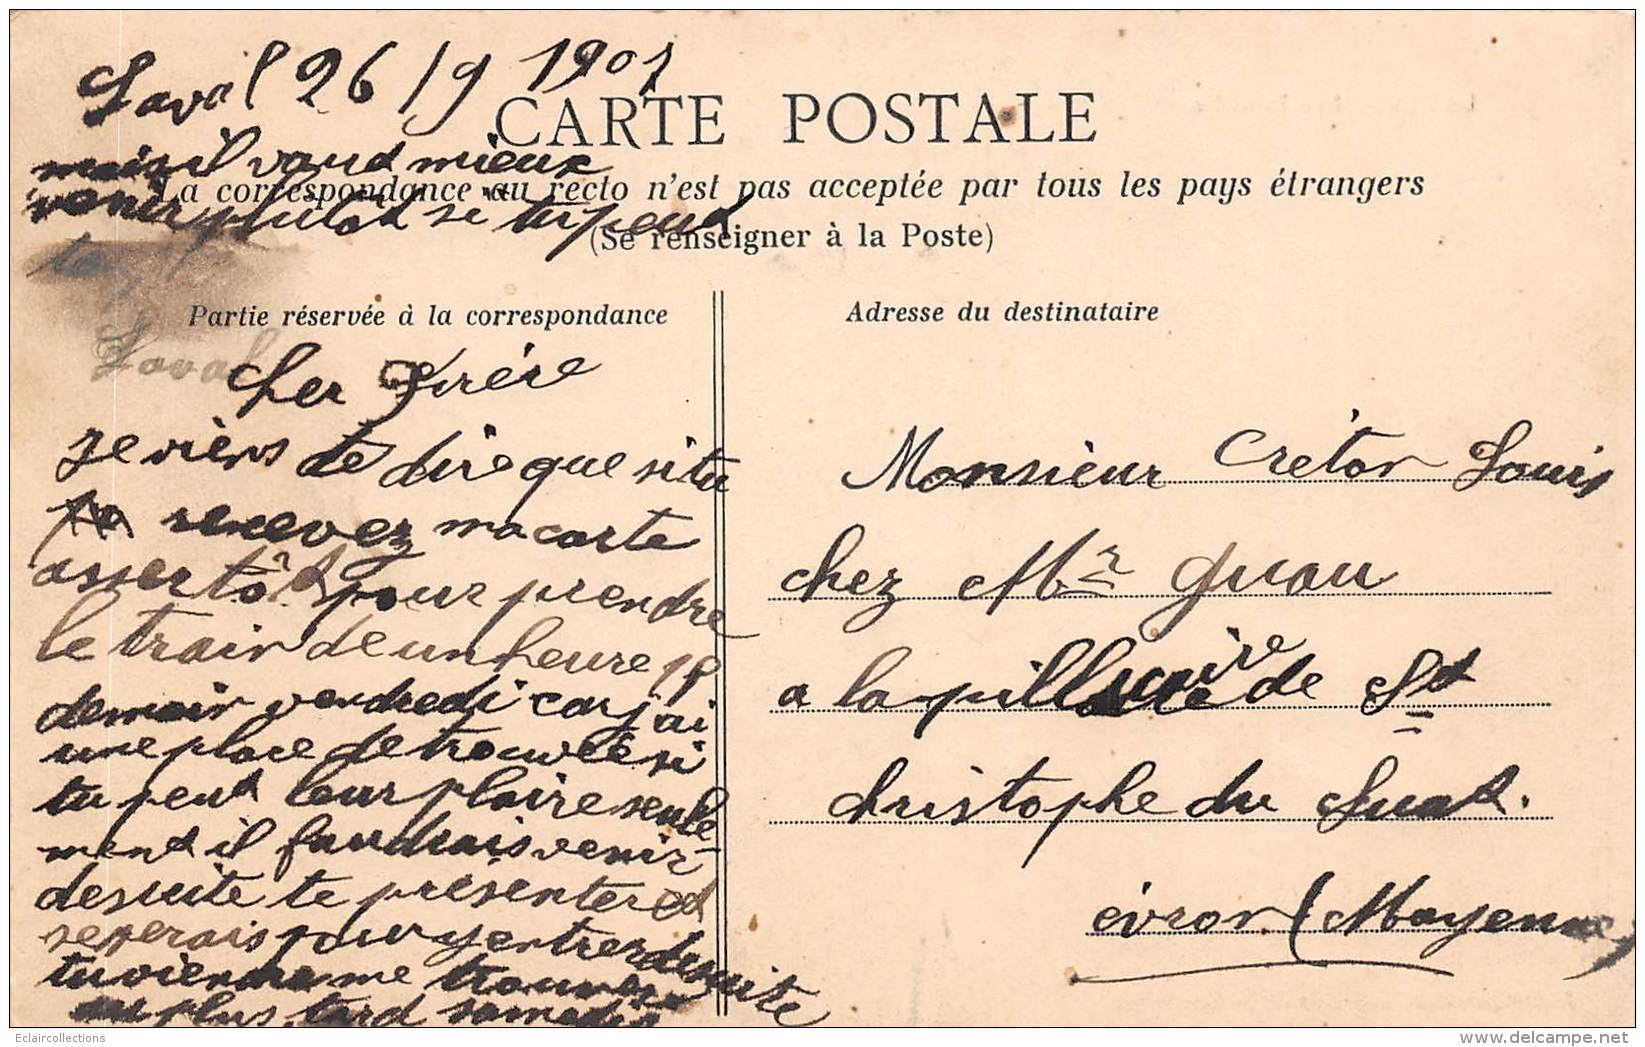 Laval 26/9 1907
CARTE POSTALE
mais il vaud mieux
La correspondance au recto n'est pas acceptée par tous les pays étrangers
venir plutot se tu peut
(Se renseigner à la Poste)
Partie réservée à la correspondance
Adresse du destinataire
Laval
Cher frère
je viens te dire que si tu
recevez ma carte
assertôt pour prendre
le train de un heure 18
demain vendredi car j'ai
une place de trouvée si
tu peut leur plaire seule
ment il faudrais venir
de suite te présenter et
se serais pour y entrer de suite
tu viendra me trouver
au plus tard samedi
Monsieur Crétor Louis
chez Mr Guau
a la de St
christophe du Luat.
évron (Mayenne)
Eclaircollections
delcampe.net